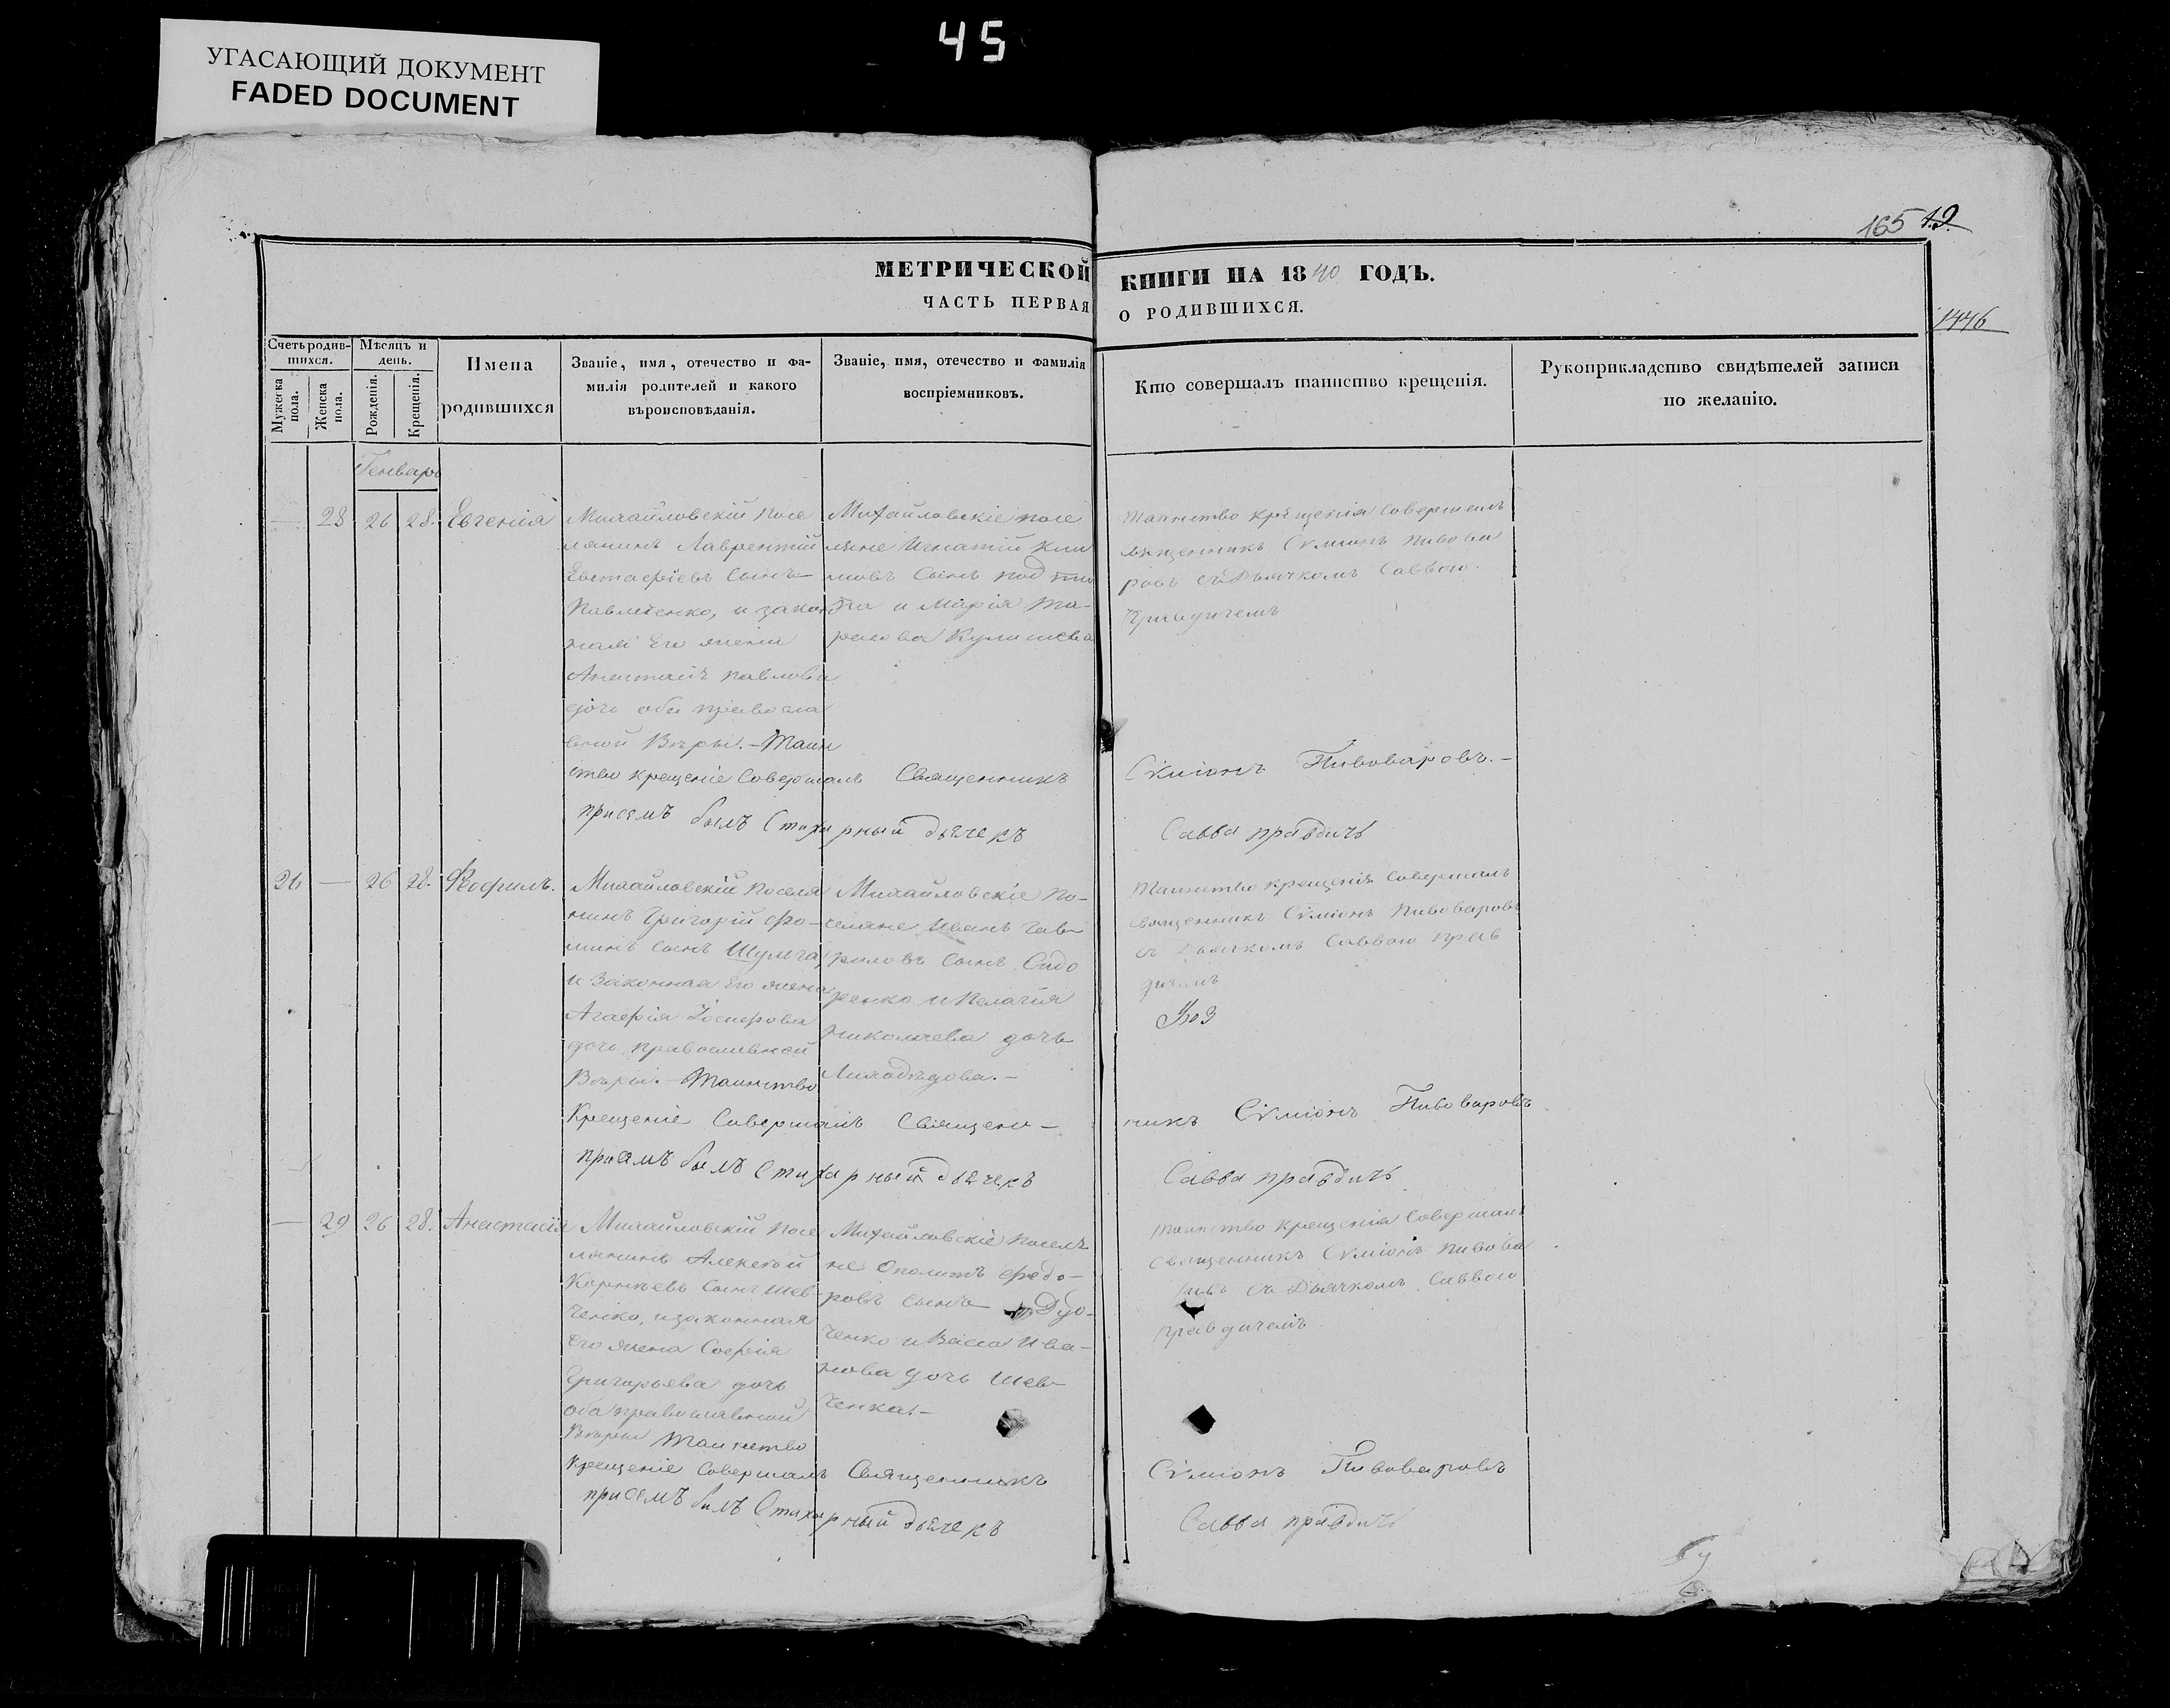 45
УГАСАЮЩИЙ ДОКУМЕНТ
FADED DOCUMENT
165 49
1446
МЕТРИЧЕСКОЙ КНИГИ НА 1840 ГОДЪ.
ЧАСТЬ ПЕРВАЯ О РОДИВШИХСЯ.
Счетъ родившихся.
Мужеска пола.
Женска пола.
Мѣсяцъ и день.
Рожденія.
Крещенія.
Имена родившихся
Званіе, имя, отечество и фа-
милія родителей и какого
вѣроисповѣданія.
Званіе, имя, отечество и фамилія
воспріемниковъ.
Кто совершалъ таинство крещенія.
Рукоприкладство свидѣтелей записи
по желанію.
Генварь
— 28 26 28. Евгенія
Михайловскій посе
лянинъ Лаврентій
Евстафіевъ сынъ
Павленко, и закон
ная его жена
Анастасія Павлова
дочь оба правосла
вной Вѣры. – Таин
ство крещеніе Совершалъ Священникъ
присемъ былъ Стихарный дьячекъ
Михайловскіе посе
ляне Игнатій Кли
мовъ Сынъ
и Марія Та-
расова Кулишева
таинство крещенія совершилъ
священникъ Сѵміонъ Пивова
ровъ съ Дьячкомъ Саввою
Правдичемъ
Сѵміонъ Пивоваровъ. –
Савва правдичъ
26 — 26 28. Феофилъ.
Михайловскій поселя
нинъ Григорій Фо-
минъ сынъ Шульга,
и Законная его жена
Агафія Іосифова
дочь православной
Вѣры. – Таинство
Крещеніе Совершалъ Священ–
присемъ былъ Стихарный дьячекъ
Михайловскіе по-
селяне Иванъ Гав-
риловъ сынъ Сидо
ренко и Пелагія
Николаева дочь
Лиходѣдова. –
Таинство крещенія совершилъ
священникъ Сѵміонъ Пивоваровъ
съ Дьячкомъ Саввою Прав
дичемъ
никъ Сѵміонъ Пивоваровъ
Савва правдичъ
— 29 26 28. Анастасія
Михайловскій посе
лянинъ Алексѣй
Корнѣевъ сынъ Шев
ченко, и законная
его жена Софія
Григорьева дочь
оба православной
Вѣры Таинство
крещеніе Совершалъ Священникъ
присемъ былъ Стихарный дьячекъ
Михайловскіе поселя
не Ополитъ Федо–
ровъ сынъ
ченко и Васса Ива–
нова дочь Шев–
ченка. –
таинство крещенія Совершалъ
священникъ Сѵміонъ Пивова
ровъ съ Дьячкомъ Саввою
правдичемъ
Сѵміонъ Пивоваровъ
Савва правдичъ